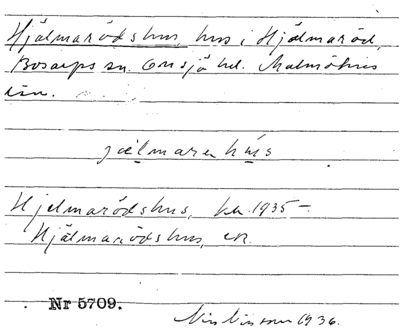 Hjälmarödshus, hus i Hjälmaröd,
Bosarps sn. Onsjö hd. Malmöhus
län.
jælmarenhus
Hjelmarödshus, kb. 1935 –
Hjälmarödshus, ER.
Nr 5709.
1936.